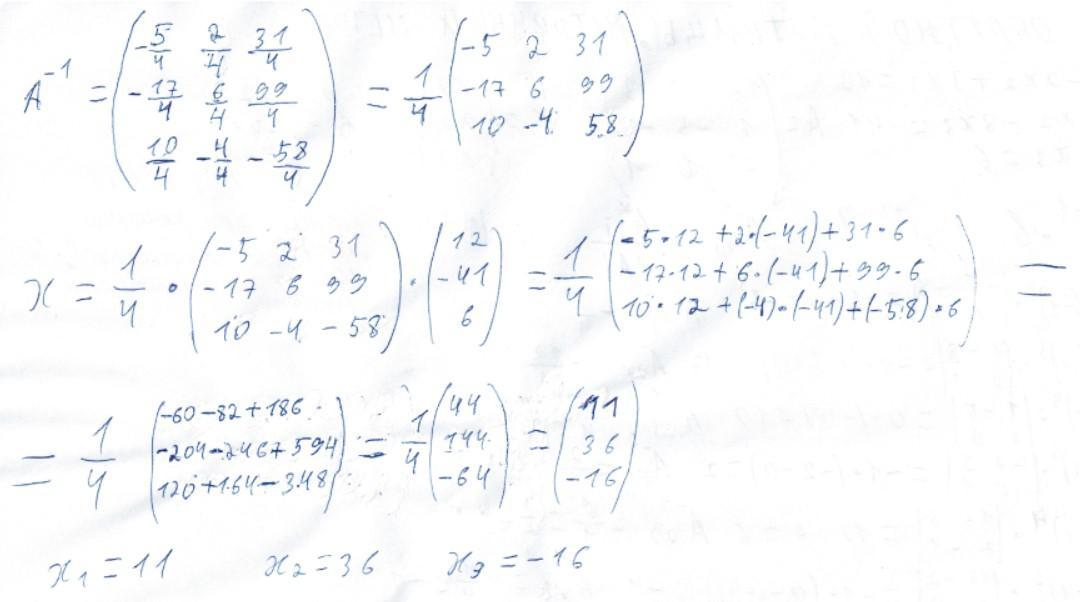 A⁻¹ = (-5/4 2/4 31/4; -17/4 6/4 99/4; 10/4 -4/4 -58/4) = 1/4 (-5 2 31; -17 6 99; 10 -4 58)
x = 1/4 · (-5 2 31; -17 6 99; 10 -4 -58) · (12; -41; 6) = 1/4 (-5·12 + 2·(-41) + 31·6; -17·12 + 6·(-41) + 99·6; 10·12 + (-4)·(-41) + (-58)·6) =
= 1/4 (-60-82+186; -204-246+594; 120+164-348) = 1/4 (44; 144; -64) = (11; 36; -16)
x₁ = 11 x₂ = 36 x₃ = -16